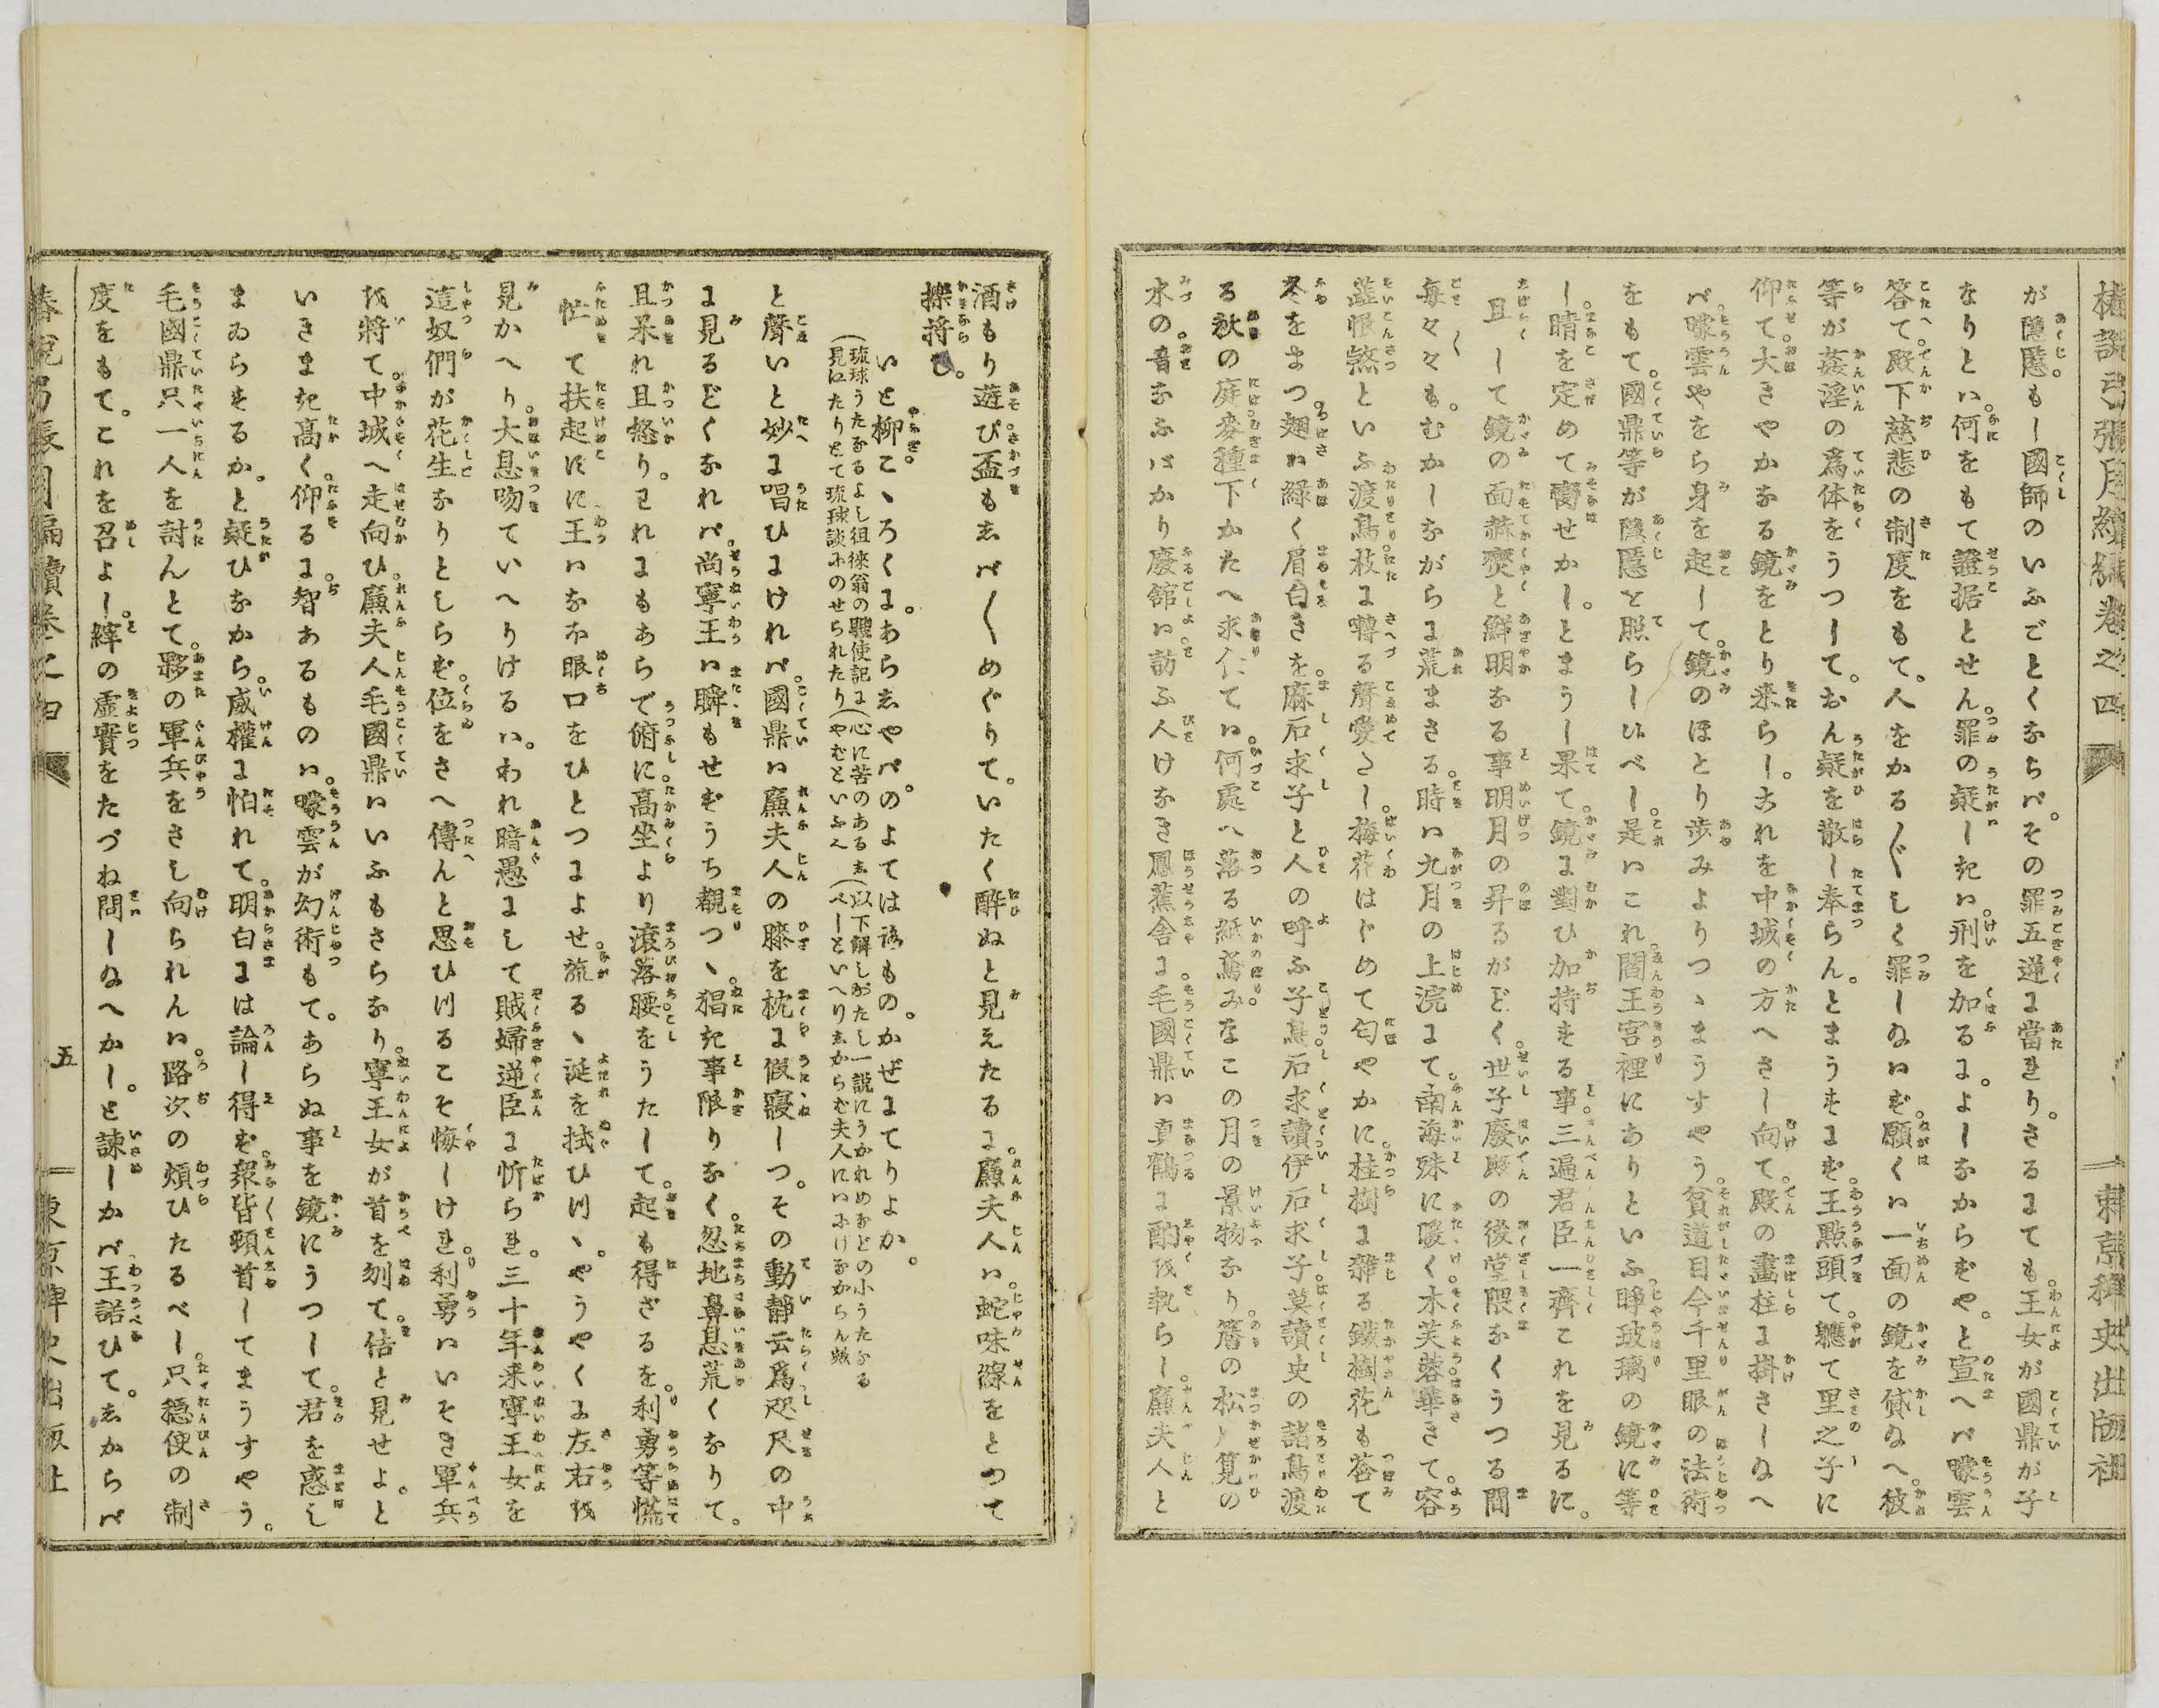 椿説弓張月續編卷之四
東京稗史出版社
が隱慝もし國師のいふごとくならバ。その罪五逆に當れり。さるにても王女が國鼎が子
なりとハ何をもて證据とせん。罪の疑しきハ刑を加るに。よしなからずや。と宣へバ曚雲
答て。殿下慈悲の制度をもて。人をかろ〴〵しく罪しゐハず。願くハ一面の鏡を貸ゐへ。彼
等が姦淫の爲体をうつして。おん疑を散し奉らん。とまうすにぞ。王點頭て。軈て里之子に
仰て。大きやかなる鏡をとり来らし。これを中城の方へさし向て。殿の畫柱に掛さしゐへ
バ。曚雲やをら身を起して。鏡のほとり歩みよりつゝまうすやう。貧道目今千里眼の法術
をもて。國鼎等が隱慝を照らしハべし。是ハこれ閻王宮裡にありといふ。睁玻璃の鏡に等
し。晴を定めて臠せかし。とまうし果て。鏡に對ひ加持する事三遍君臣一齊これを見るに。
且して鏡の面赫奕と鮮明なる事明月の昇るがごく。世子廢殿の後堂隈なくうつる間
毎々々も。むかしながらに荒まさる。時ハ九月の上浣にて。南海殊に暖く。木芙蓉華さきて。容
蕋眼煞といふ渡鳥枝に囀る聲愛たし。梅花はじめて匂やかに。桂樹に雜る鐵樹花も莟て
冬をまつ。翅ハ緑く眉白きを。麻石求子と人の呼ふ子鳥石求讀伊石求子莫讀史の諸鳥渡
る秋の庭。麥種下かたへ求仁てハ。何處ハ落る紙鳶。みなこの月の景物なり。簷の松風筧の
水の。音なふバかり廢舘ハ訪ふ人けなき鳳蕉舎に。毛國鼎ハ真鶴に酌を執らし。廉夫人と
酒もり遊び盃もしバ〳〵めぐりて。いたく酔ぬと見えたるに。廉夫人ハ。蛇味線をとつて
擽捋し。
いと柳こゝろくに。あらしやバ。のよては誘もの。かぜにてりよか。
(琉球うたなるよし徂徠翁の聘使記に(心に苦のあるを(以下解しがたし一説にうかれめなどの小うたなる
見江たりとて琉球談にのせられたり(やむといふ〻(べーといへりしからむ夫人にハふけなからん歟
と聲いと妙に唱ひにけれバ。國鼎ハ廉夫人の膝を枕に假寢しつ。その動靜云爲咫尺の中
に見るごくなれバ。尚寧王ハ瞬もせずうち覩つゝ。猖き事限りなく。忽地鼻息荒くなりて。
且呆れ且怒り。われにもあらで俯に。高坐より滚落腰をうたして。起も得ざるを。利勇等慌
忙て扶起すに。王ハなほ眼口をひとつによせ。流るゝ涎を拭ひつゝ。やうやくに左右を
見かへり。大息吻ていへりけるハ。われ暗愚にして賊婦逆臣に忻られ。三十年来寧王女を
這奴們が花生なりとしらず。位をさへ傳へんと思ひつるこそ悔しけれ。利勇ハいそぎ軍兵
を將て。中城へ走向ひ。廉夫人毛國鼎ハいふもさらなり。寧王女が首を刎て。佶と見せよ。と
いきまき高く。仰るに。智あるものハ。曚雲が幻術もて。あらぬ事を鏡にうつして。君を惑し
まゐらするか。と疑ひながら。威權に怕れて。明白には論し得ず。衆皆頓首してまうすやう。
毛國鼎只一人を討んとて。夥の軍兵をさし向られんハ。路次の煩ひたるべし。只穏使の制
度をもて。これを召よし。縡の虚實をたづね問しゐへかし。と諫しかバ。王諾ひて。しからバ
椿説弓張月編續卷之四
五
東京稗史出版社